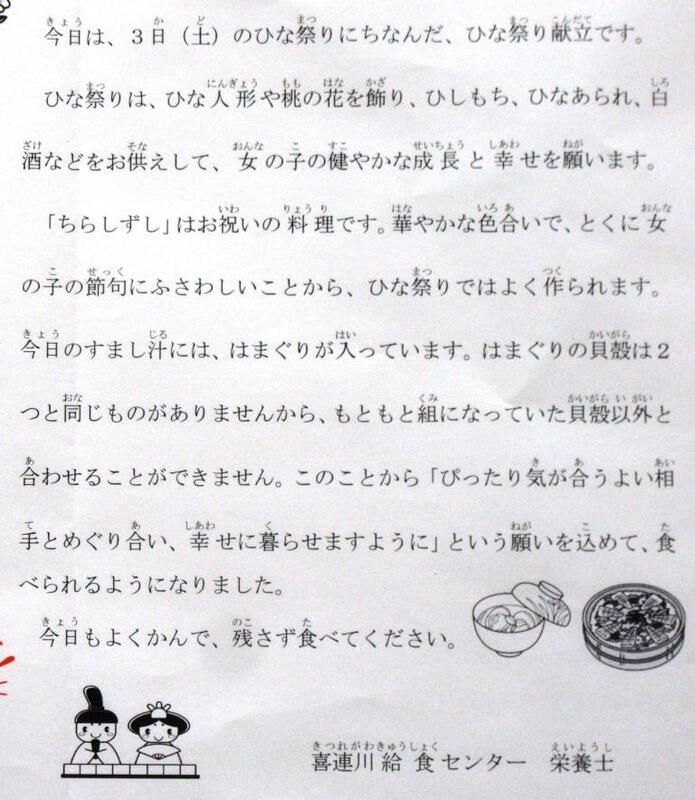 今日は、３日（土）のひな祭りにちなんだ、ひな祭り献立です。
ひな祭りは、ひな人形や桃の花を飾り、ひしもち、ひなあられ、白
酒などをお供えして、女の子の健やかな成長と幸せを願います。
「ちらしずし」はお祝いの料理です。華やかな色合いで、とくに女
の子の節句にふさわしいことから、ひな祭りではよく作られます。
今日のすまし汁には、はまぐりが入っています。はまぐりの貝殻は２
つと同じものがありませんから、もともと組になっていた貝殻以外と
合わせることができません。このことから「ぴったり気が合うよい相
手とめぐり合い、幸せに暮らせますように」という願いを込めて、食
べられるようになりました。
今日もよくかんで、残さず食べてください。
喜連川給食センター　栄養士